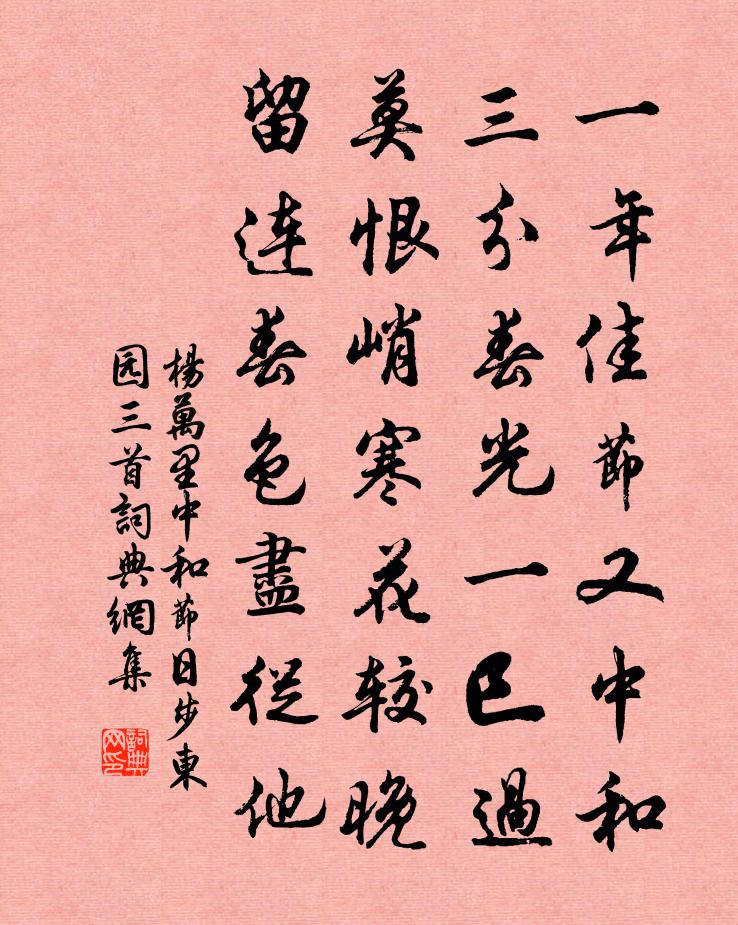 一年佳節又中和
三分春光一已過
莫恨峭寒花较晚
留連春色盡從他
楊萬里中和節日步東
园三首詞典網集
詞典网印